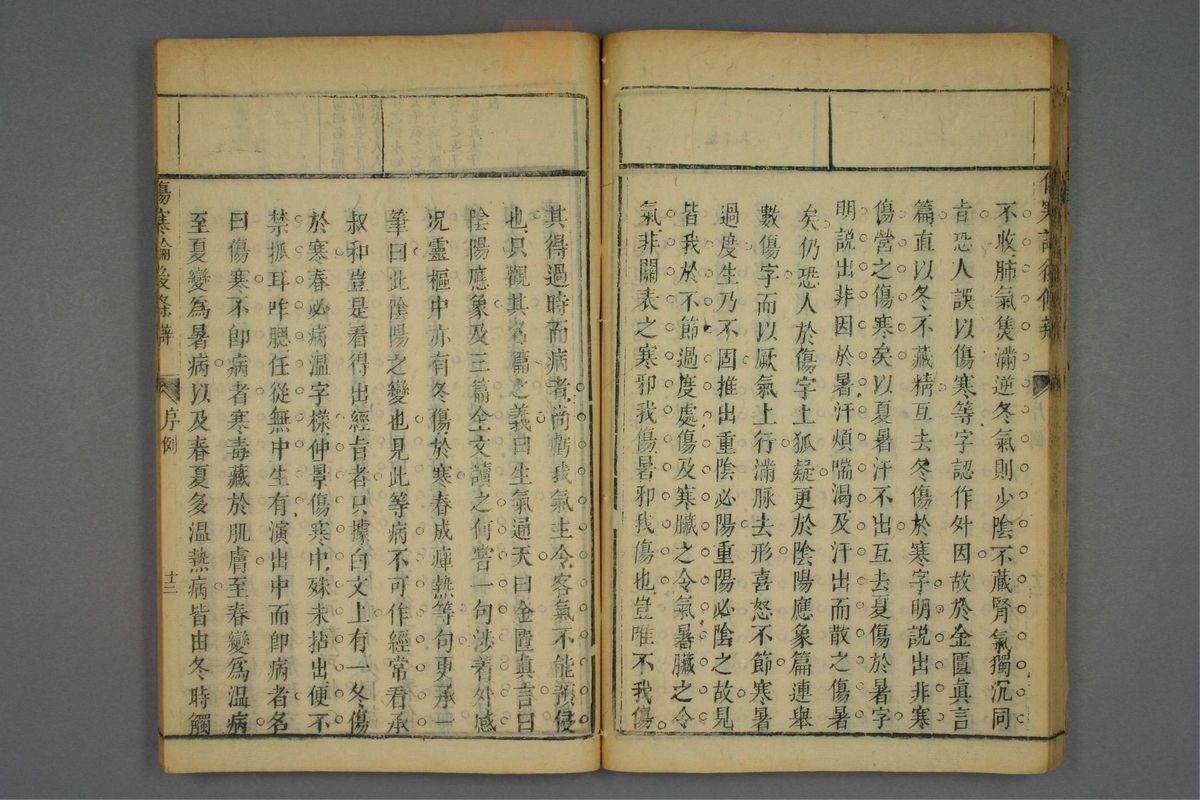 不收肺氣焦滿逆冬氣則少陰不藏腎氣獨沉同
旨恐人誤以傷寒等字認作外因故於金匱真言
篇直以冬不藏精互去冬傷於寒字明說出非寒
傷營之傷寒矣以夏暑汗不出互去夏傷於暑字
明說出非因於暑汗煩喘渴及汗出而散之傷暑
矣仍恐人於傷字上狐疑更於陰陽應象篇連舉
數傷字而以厥氣上行滿脉去形喜怒不節寒暑
過度生乃不固推出重陰必陽重陽必陰之故見
皆我於不節過度處傷及寒臟之令氣暑臟之令
氣非關表之寒邪我傷暑邪我傷也豈唯不我傷
其得過時而病者尚藉我氣主令客氣不能預侵
也只觀其名篇之義曰生氣通天曰金匱真言曰
陰陽應象及三篇全文讀之何嘗一句涉着外感
况靈樞中亦有冬傷於寒春成癉熱等句更承一
筆曰此陰陽之變也見此等病不可作經常看承
叔和豈是看得出經旨者只據白文上有一冬傷
於寒春必病溫字樣仲景傷寒中殊未拈出便不
禁孤耳咋腮任從無中生有演出中而卽病者名
曰傷寒不卽病者寒毒藏於肌膚至春變爲溫病
至夏變爲暑病以及春夏多溫熱病皆由冬時觸
傷寒論後條辨
序例
十三